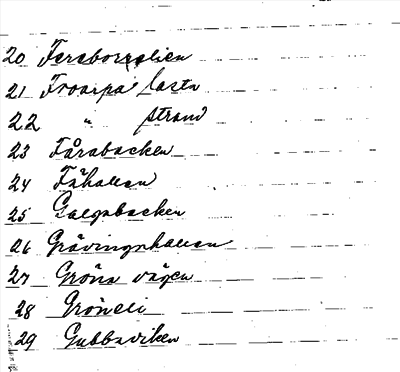 20 Fereborgslien
21 Froarpa lastn
22 " strand
23 Fårabacken
24 Fähallan
25 Galgabacken
26 Grävlingshallan
27 Gröna vägen
28 Gröneli
29 Gubbaviken